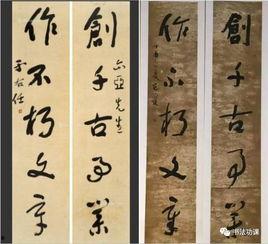 創千古事業
六亞先生
作不朽文章
于右任
創千古事業
作不朽文章
书法功课